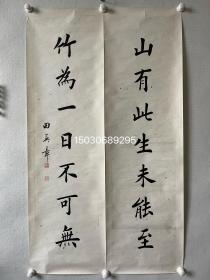 山有此生未能至
竹為一日不可無
田英章
15030689295